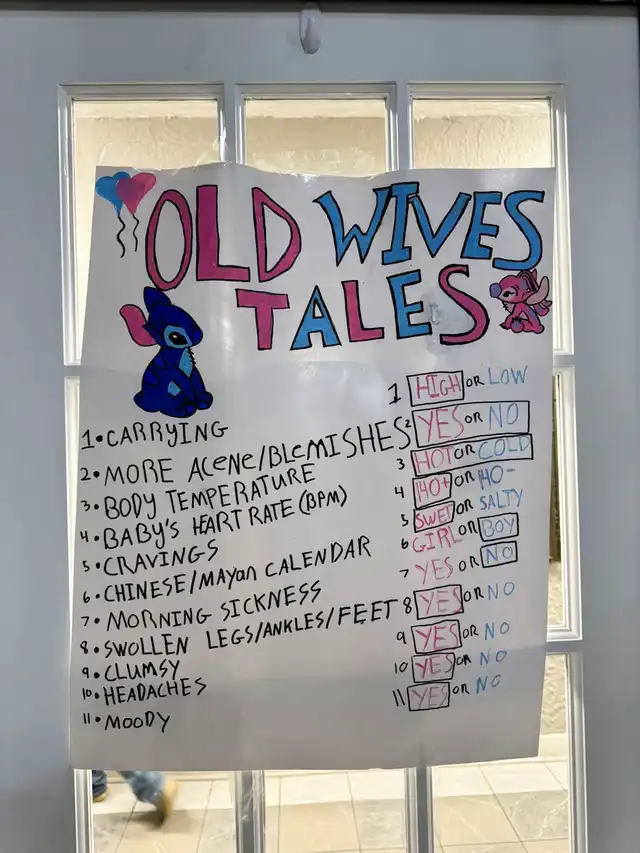 OLD WIVES
TALES
1•CARRYING 1 HIGH OR LOW
2•MORE ACENE/BLEMISHES 2 YES OR NO
3•BODY TEMPERATURE 3 HOT OR COLD
4•BABY'S HEART RATE (BPM) 4 140+ OR 140-
5•CRAVINGS 5 SWET OR SALTY
6•CHINESE/MAYAN CALENDAR 6 GIRL OR BOY
7•MORNING SICKNESS 7 YES OR NO
8•SWOLLEN LEGS/ANKLES/FEET 8 YES OR NO
9•CLUMSY 9 YES OR NO
10•HEADACHES 10 YES OR NO
11•MOODY 11 YES OR NO